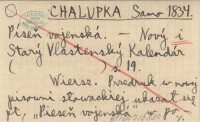 CHALUPKA Samo 1834.
Pieseň vojenská. — Nový i
Starý Vlastenský Kalendár
( ) s. 19.
Wiersz. Przedruk w nowej
pisowni słowackiej ukazał się
pt. „Pieseň vojenská"